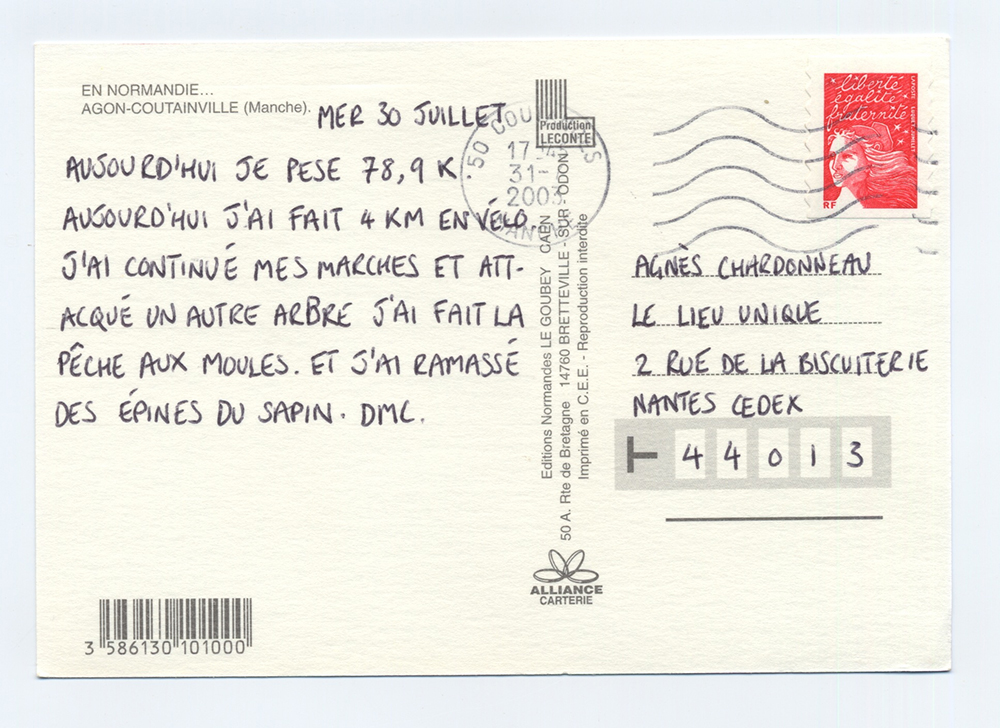 EN NORMANDIE...
AGON-COUTAINVILLE (Manche).
MER 30 JUILLET
AUJOURD'HUI JE PESE 78,9 K
AUJOURD'HUI J'AI FAIT 4 KM EN VÉLO.
J'AI CONTINUÉ MES MARCHES ET ATT-
ACQUÉ UN AUTRE ARBRE J'AI FAIT LA
PÊCHE AUX MOULES. ET J'AI RAMASSÉ
DES ÉPINES DU SAPIN. DMC.
3 586130 101000
Production
LECONTE
50
17
31-
2003
Editions Normandes LE GOUBEY CAEN
50 A. Rte de Bretagne 14760 BRETTEVILLE - SUR - ODON
Imprimé en C.E.E. - Reproduction interdite
ALLIANCE
CARTERIE
liberté
égalité
fraternité
RF
AGNÈS CHARDONNEAU
LE LIEU UNIQUE
2 RUE DE LA BISCUITERIE
NANTES CEDEX
44013